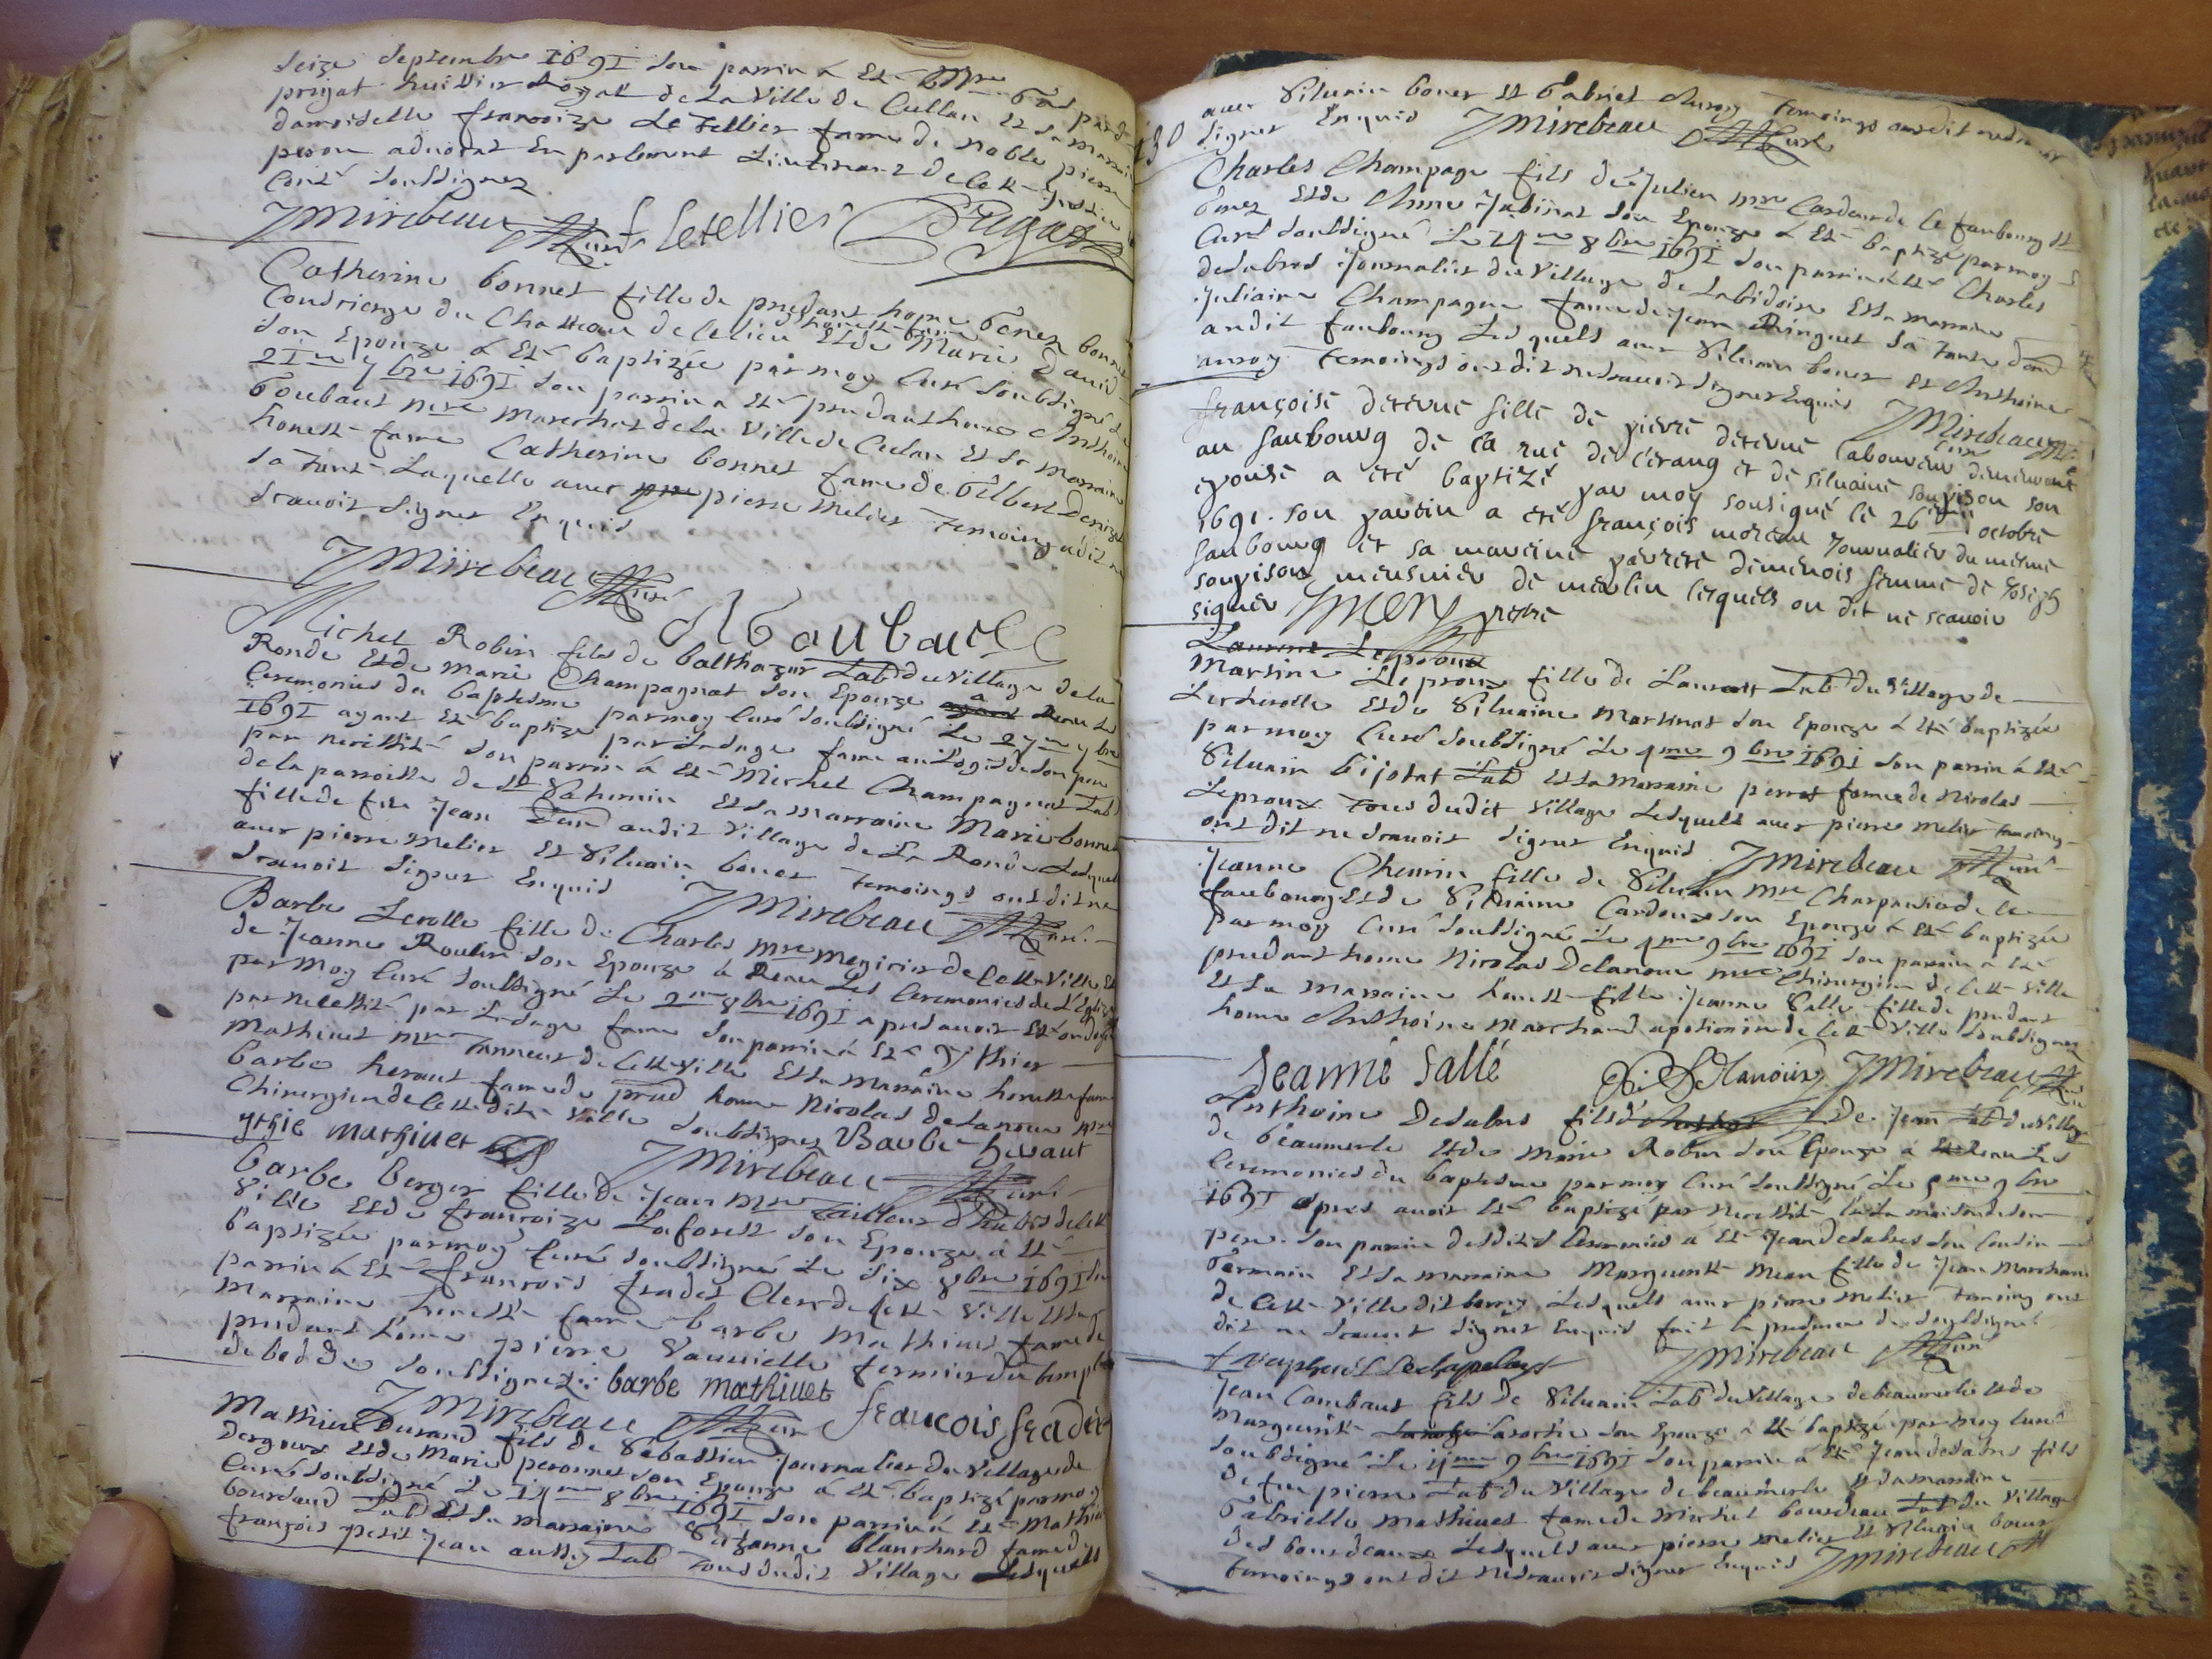 seize septembre 1691 son parrin a esté
huissier Royal de La Ville de Cullan et sa marraine
damoiselle françoize Le Tellier fame de noble pierre
peron advocat En parlement Lieutenant de cette Justice
soubsignez
JMirebeau curé f letellier
Catherine bonnet fille de prudant home Genez bonnet
Concierge du Chatteau de ce lieu Et de honneste fame Marie David
son Epouze a Esté baptizée par moy Curé soubsigné le
21me 7bre 1691 son parrin a esté prudant home Anthoine
Goubaut mre Mareschal de la Ville de Culan Et sa Marraine
honeste fame Catherine bonnet fame de Gilbert
sa Tante Laquelle avec pierre Melier Temoing a dit ne
scavoir signer Enquis
JMirebeau curé
AGoubault
Michel Robin fils de balthazar Lab du Village de la
Ronde Et de Marie Champagnat son Epouze a Receu les
Ceremonies du baptesme par moy Curé soubsigné Le 27me 7bre
1691 ayant Esté baptizé par La sage fame au Logis de son pere
par necessité son parrin a Esté Michel Champagnat Lab
de la parroisse de St Et sa marraine Marie bonnet
fille de feu Jean audit Village de La Ronde Lesquels
avec pierre Melier et Silvain bouer Temoings ont dit ne
scavoir signer Enquis JMirebeau curé
Barbe Lerolle fille de Charles mre Megicier de cette Ville Et
de Jeanne Roulin son Epouze a Receu Les Ceremonies de L'Eglize
par moy Curé soubsigné Le 2me 8bre 1691 apres avoir Esté
par necessité par La sage fame son parrin a Esté Ythier
Mathivet mre Tanneur de cette Ville Et sa Marraine honneste fame
barbe heraut fame de prud home Nicolas Delanoue mre
Chirurgien de cette dite Ville soubsignez Barbe heraut
ythie mathivet JMirebeau curé
barbe berger fille de Jean mre Tailleur d'habits de cette
Ville Et de françoize Laforest son Epouze a Esté
baptizée par moy Curé soubsigné Le dix 8bre 1691 son
parrin a Esté françois frades Clerc de cette Ville Et sa
Marraine honneste fame barbe Mathivet fame de
prudant home pierre fermier du temple
soubsignez barbe mathivet
JMirebeau curé francois frades
Mathieu Durand fils de Sebastien Journalier du Village de
Et de Marie peronnet son Epouze a Esté baptizé par moy
Curé soubsigné Le 8bre 1691 son parrin a Esté Mathieu
bourdaud Lab Et sa marraine Suzanne blanchard fame de
françois petit Jean aussy Lab Tous dudit Village Lesquels
130
avec Silvain bouer et Gabriel Auroy Temoings ont dit ne scavoir
signer Enquis JMirebeau curé
Charles Champage fils de Julien mre Cardeur de ce faubourg St
Genez Et de Anne Jabinat son Epouze a Esté baptizé par moy
Curé soubsigné Le 8bre 1691 son parrin a esté Charles
desabres Journalier du Village de Labidoire Et sa marraine
Juliaine Champagne fame de Jean Ringuet sa Tante
audit faubourg Lesquels avec Silvain bouer et Anthoine
auroy Temoings ont dit ne scavoir signer Enquis JMirebeau curé
françoise deterne fille de pierre deterne laboureur demeurant
au faubourg de la rue de l'etang et de silvaine soupison son
epouse a eté baptizé par moy sousigné le 26me octobre
1691. son parrin a eté françois moreau journalier du meme
faubourg et sa mareine demenois femme de
soupison meusnier de lesquels on dit ne scavoir
signer prêtre
Laurent Leproux
Martine Leproux fille de Laurent Lab du Village de
Et de Silvaine Martinat son Epouze a Esté baptizée
par moy Curé soubsigné Le 4me 9bre 1691 son parrin a Esté
Silvain bijotat Lab Et sa Marraine fame de Nicolas
Leproux Tous dudit Village Lesquels avec pierre Melier Temoing
ont dit ne scavoir signer Enquis JMirebeau curé
Jeanne Chemin fille de Silvain mre Charpantier de ce
faubourg Et de Silvaine Cardoux son Epouze a Esté baptizée
par moy Curé soubsigné Le 4me 9bre 1691 son parrin a Esté
prudant home Nicolas Delanoue mre Chirurgien de cette Ville
Et sa Marraine honeste fille Jeanne Sallé fille de prudant
home Anthoine Marchand apoticaire de cette Ville soubsignez
Jeanne Sallé Delanoue JMirebeau curé
Anthoine Desabres fils de Jean Lab du Village
de beaumerle Et de Marie Robin son Epouze a Receu Les
Ceremonies du baptesme par moy Curé soubsigné Le 9bre
1691 apres avoir Esté baptizé par necessité en La maison de son
pere son parrin desdites Ceremonies a Esté Jean desabres son Cousin
Germain Et sa marraine Marguerite fille de Jean Marchand
de cette Ville dit Lesquels avec pierre Melier Temoing ont
dit ne scavoir signer Enquis fait En presence du soubsigné
JMirebeau curé
Jean Combaut fils de Silvain Lab du Village de beaumerle Et de
Marguerite son Epouze a Esté baptizé par moy Curé
soubsigné Le 9bre 1691 son parrin a Esté Jean desabres fils
de feu pierre Lab du Village de beaumerle Et sa marraine
Gabrielle Mathivet fame de Michel bourdeau Lab du Village
des bourdeaux Lesquels avec pierre Melier et Silvain bouer
Temoings ont dit ne scavoir signer Enquis JMirebeau